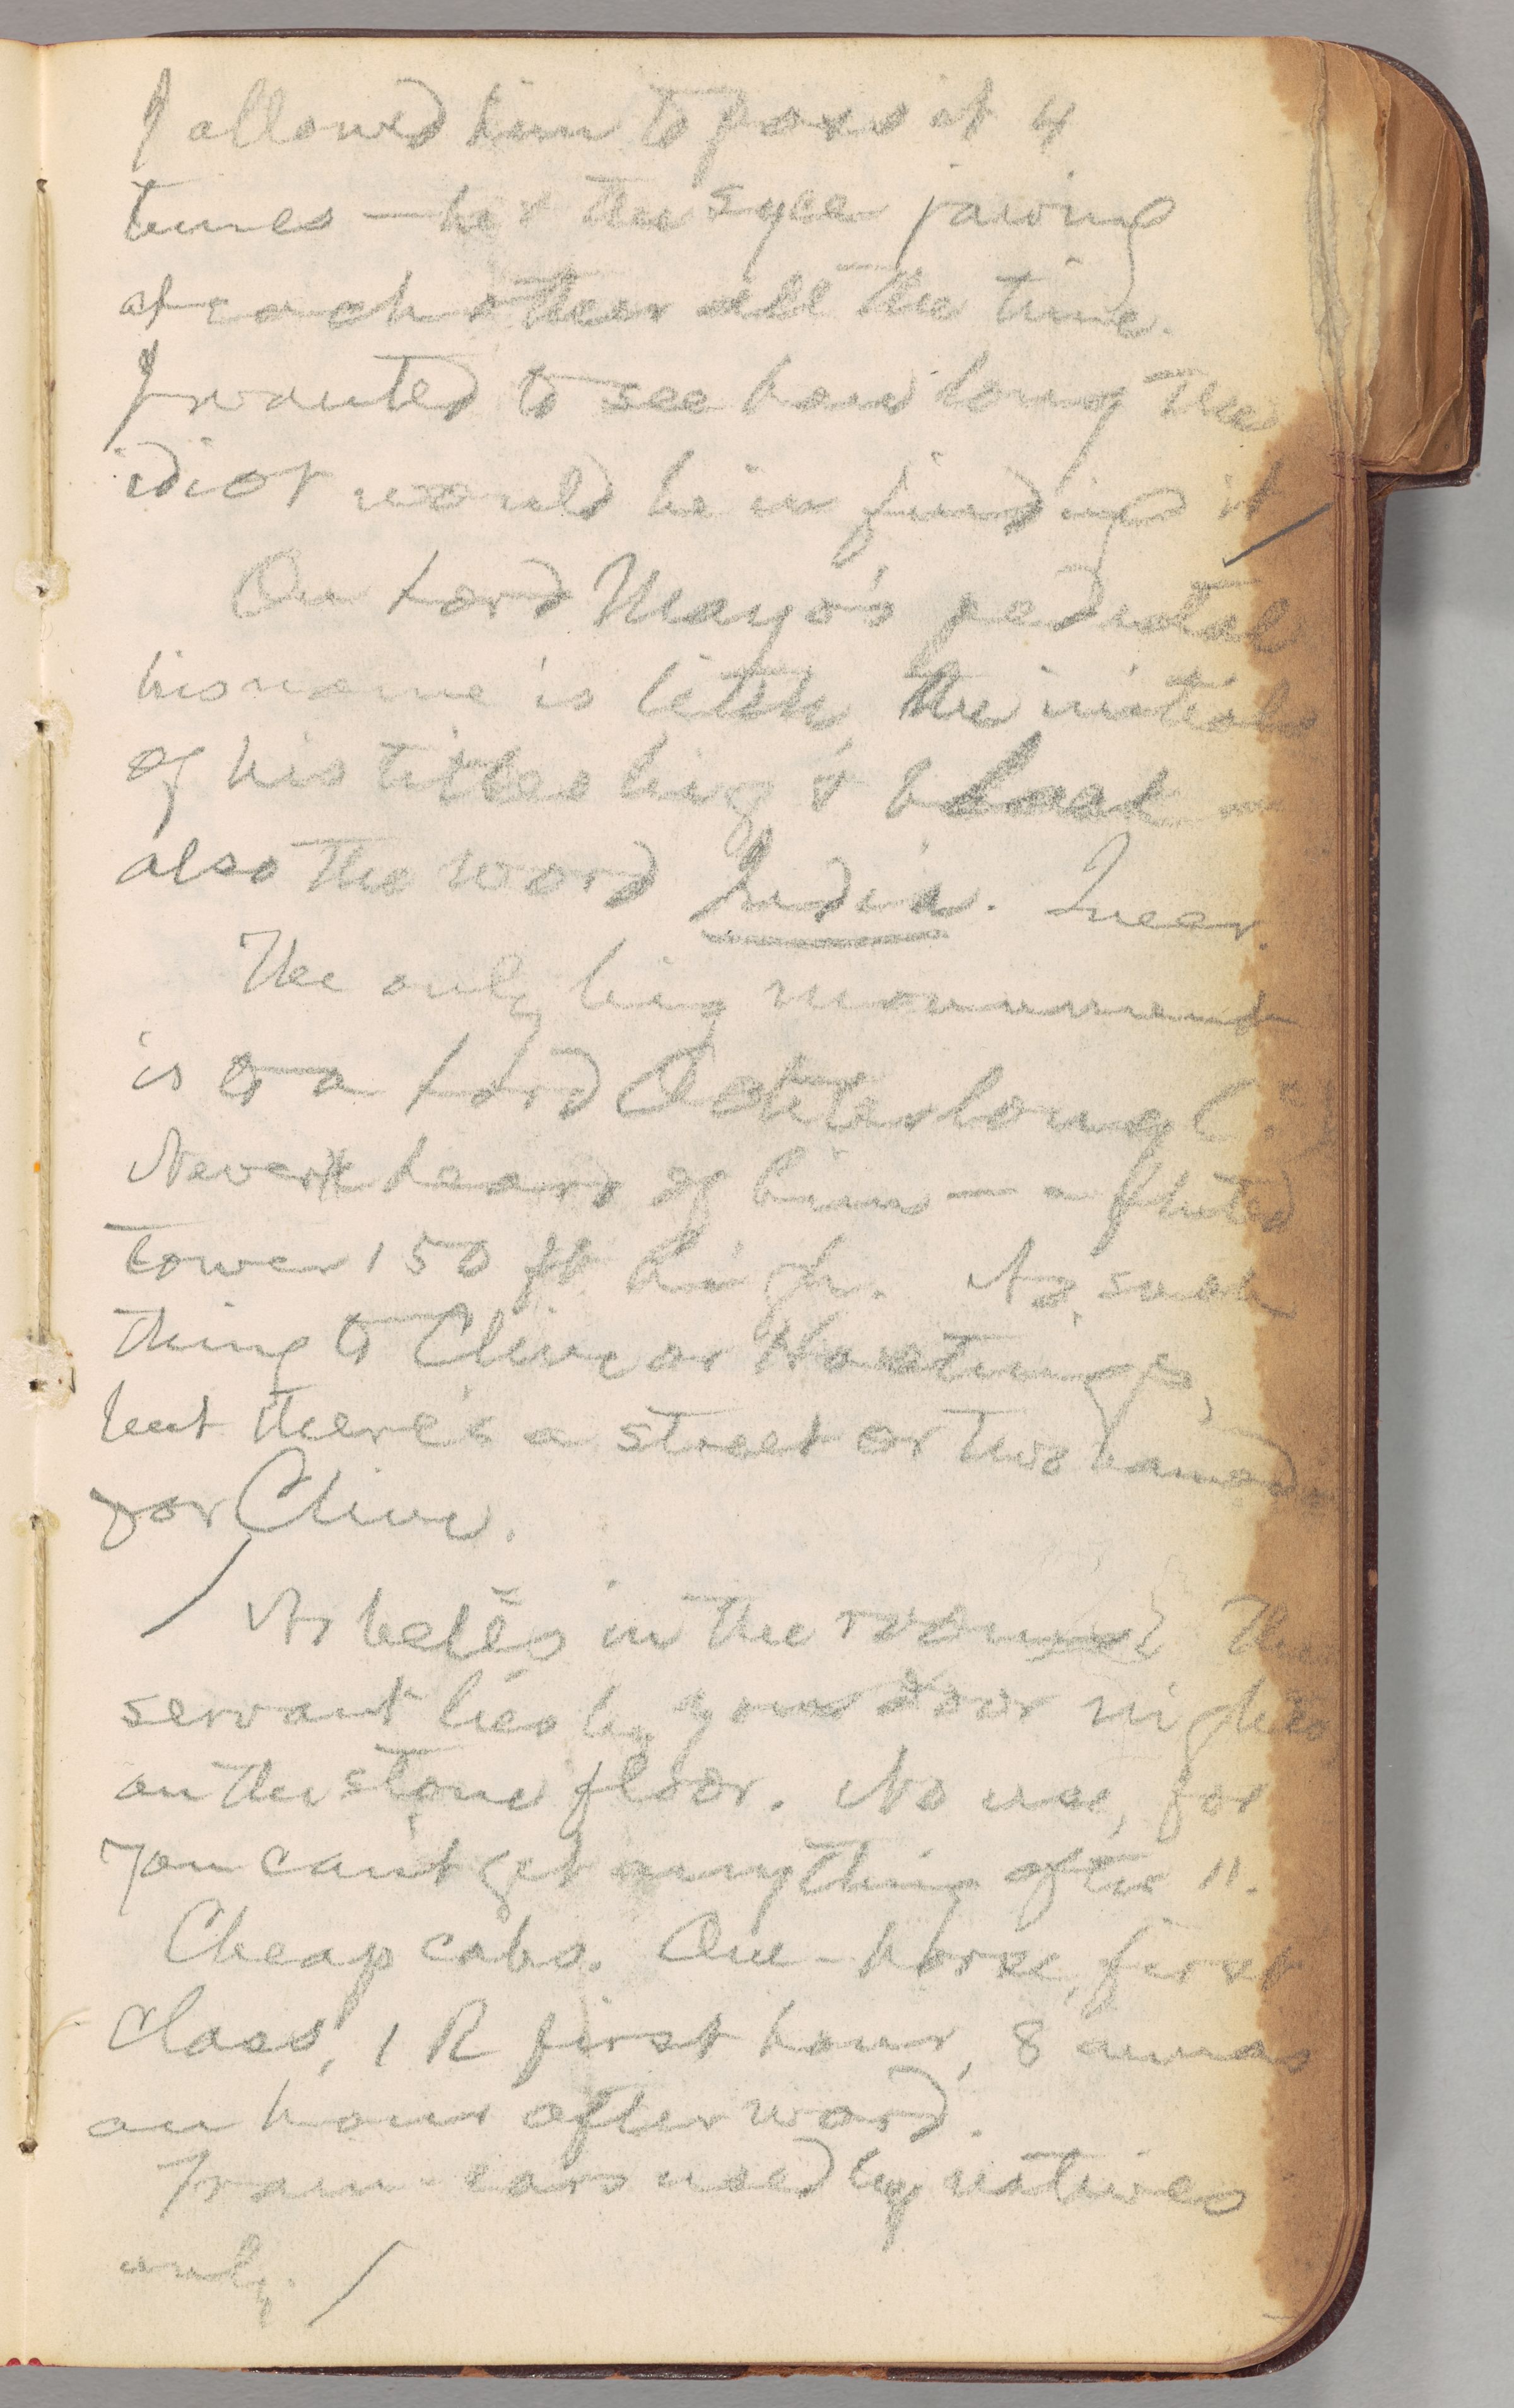 I allowed him to pass it 4
times — he & the syce jawing
at each other all the time.
I wanted to see how long the
idiot would be in finding it
On Lord Mayo's pedestal
his name is little, the initials
of his titles big & black —
also the word India. Queer.
The only big monument
is to a Lord Ochterlony (?)
Never heard of him — a fluted
tower 150 ft high. No such
thing to Clive or Hastings,
but there's a street or two named
for Clive.
No bells in the rooms. The
servant lies by your door nights
on the stone floor. No use, for
you can't get anything after 11.
Cheap cabs. One-horse, first
class, 1 R first hour, 8 annas
an hour afterward.
Tram-cars used by natives
only.